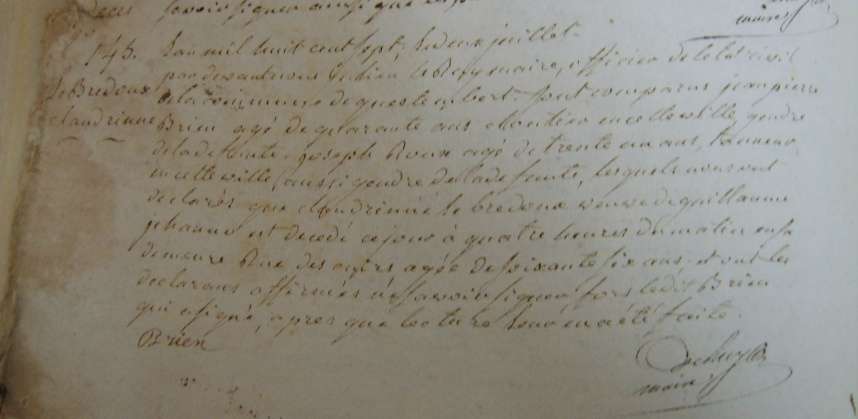 Deces savoir signer ainsi que
maire
145. L'an mil huit cent sept, le deux juillet
par devant nous le Roy maire, officier de l'etat civil
le Bredoux de la commune de questembert. Sont comparus jean pierre
claudrienne Brien agé de quarante ans cloutier en cette ville, gendre
de la defunte. joseph Roux agé de trente un ans, tanneur
en cette ville, aussi gendre de la defunte, lesquels nous ont
declarés que claudrienne le bredoux veuve de guillaume
jehanno est decedé ce jour à quatre heures du matin en sa
demeure Rue des agée de soixante six ans. et ont les
declarans affirmés ne savoir signer fors ledit Brien
qui a signé, apres que lecture leur en a été faite.
Brien
maire